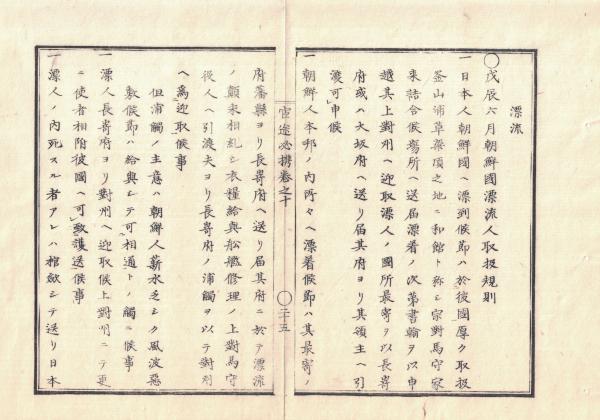 漂流
○戊辰六月朝鮮國漂流人取扱規則
一日本人朝鮮國ヘ漂到候節ハ於彼國厚ク取扱
釜山浦草梁項之地ニ和館ト称シ宗對馬守家
来詰合候場所ヘ送届漂着ノ次第書翰ヲ以申
越其上對州ヘ迎取漂人ノ國所最寄ヲ以長崎
府或ハ大坂府ヘ送リ届其府ヨリ其領主ヘ引
渡可申候
一朝鮮人本邦ノ内所々ヘ漂着候節ハ其最寄ノ
官途必携巻之十
○二十五
府藩縣ヨリ長崎府ヘ送リ届其府ニ於テ漂流
ノ顛末相糺シ衣糧給與船艦修理ノ上對馬守
役人ヘ引渡夫ヨリ長崎府ノ浦觸ヲ以テ對州
ヘ為迎取候事
但浦觸ノ主意ハ朝鮮人薪水乏シク風波悪
敷候節ハ給與シテ可相通トノ觸ニ候事
一漂人長崎府ヨリ對州ヘ迎取候上對州ニテ更
ニ使者相附彼國ヘ可致護送候事
一漂人ノ内死スル者アレハ棺歛シテ送リ日本